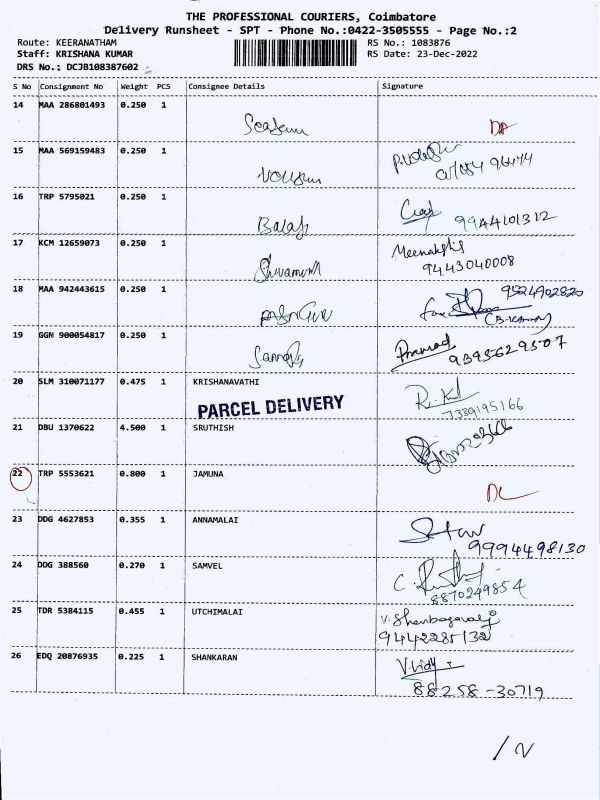 THE PROFESSIONAL COURIERS, Coimbatore
Delivery Runsheet - SPT - Phone No.:0422-3505555 - Page No.:2
Route: KEERANATHAM RS No.: 1083876
Staff: KRISHANA KUMAR RS Date: 23-Dec-2022
DRS No.: DCJB108387602
S No Consignment No Weight PCS Consignee Details Signature
14 MAA 286801493 0.250 1
15 MAA 569159483 0.250 1
16 TRP 5795021 0.250 1
Balaji 9944101312
17 KCM 12659073 0.250 1 Meenakshi
9443040008
18 MAA 942443615 0.250 1
19 GGN 900054817 0.250 1
Pramod
20 SLM 310071177 0.475 1 KRISHANAVATHI
PARCEL DELIVERY 7339195166
21 DBU 1370622 4.500 1 SRUTHISH
22 TRP 5553621 0.800 1 JAMUNA
23 DDG 4627853 0.355 1 ANNAMALAI
9994498130
24 DDG 388560 0.270 1 SAMVEL
8870249854
25 TDR 5384115 0.455 1 UTCHIMALAI
9442285132
26 EDQ 20876935 0.225 1 SHANKARAN
88258-30719